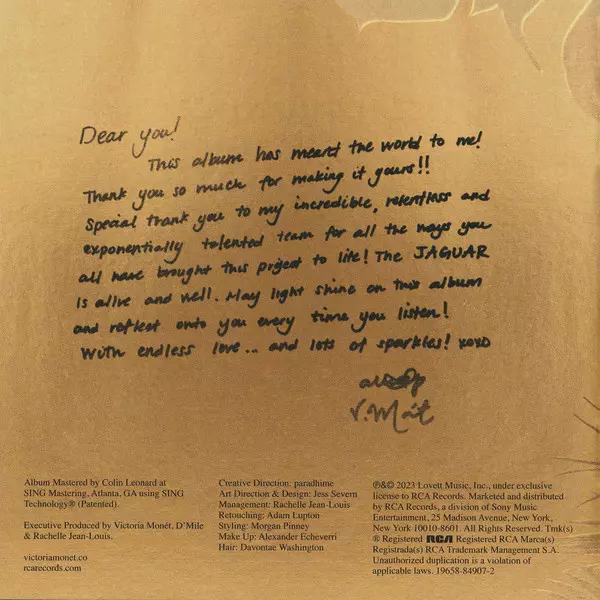 Dear you!
This album has meant the world to me!
Thank you so much for making it yours!!
Special thank you to my incredible, relentless and
exponentially talented team for all the ways you
all have brought this project to life! The JAGUAR
is alive and well. May light shine on this album
and reflect onto you every time you listen!
With endless love... and lots of sparkles! xoxo
V. Monét
Album Mastered by Colin Leonard at
SING Mastering, Atlanta, GA using SING
Technology® (Patented).
Executive Produced by Victoria Monét, D'Mile
& Rachelle Jean-Louis.
victoriamonet.co
rcarecords.com
Creative Direction: paradhime
Art Direction & Design: Jess Severn
Management: Rachelle Jean-Louis
Retouching: Adam Lupton
Styling: Morgan Pinney
Make Up: Alexander Echeverri
Hair: Davontae Washington
℗&© 2023 Lovett Music, Inc., under exclusive
license to RCA Records. Marketed and distributed
by RCA Records, a division of Sony Music
Entertainment, 25 Madison Avenue, New York,
New York 10010-8601. All Rights Reserved. Tmk(s)
® Registered RCA Registered RCA Marca(s)
Registrada(s) RCA Trademark Management S.A.
Unauthorized duplication is a violation of
applicable laws. 19658-84907-2